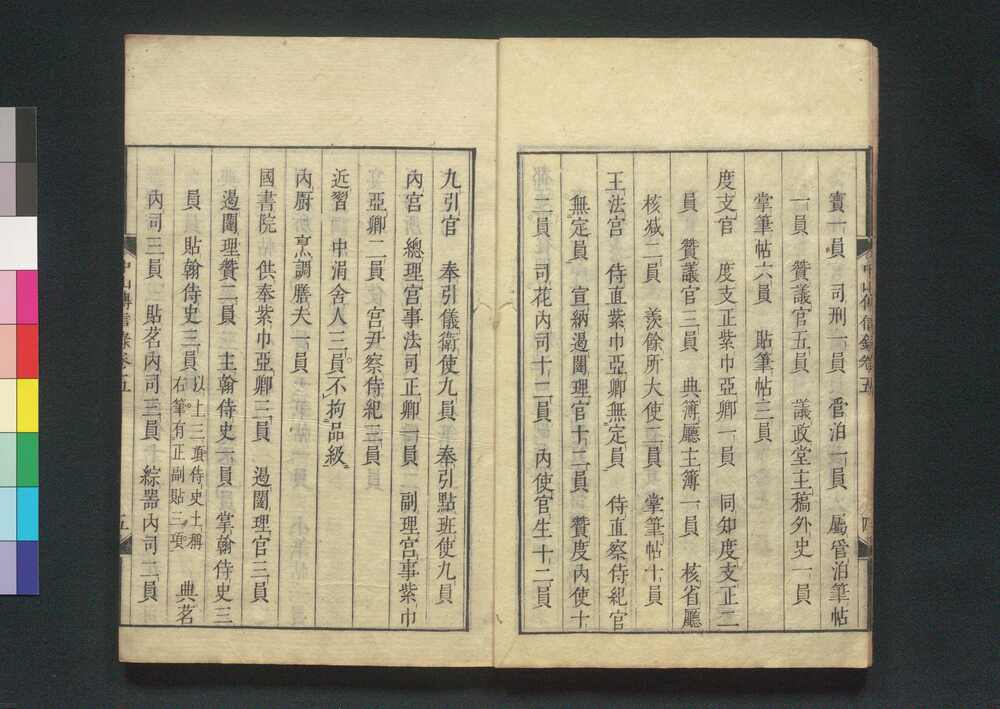 寶一員　司刑一員　管泊一員　屬管泊筆帖
一員　贊議官五員　議政堂主稿外史一員
掌筆帖六員　貼筆帖三員
度支官　度支正紫巾亞卿一員　同知度支正二
員　贊議官三員　典簿廳主簿一員　核省廳
核減二員　羨餘所大使二員　掌筆帖十員
王法宮　侍直紫巾亞卿無定員　侍直察侍紀官
無定員　宣納遏闥理官十二員　贊度內使十
二員　司花內司十二員　內使官生十二員
中山傳信錄卷五
四
九引官　奉引儀衛使九員　奉引點班使九員
內宮　總理宮事法司正卿一員　副理宮事紫巾
亞卿二員　宮尹察侍紀三員
近習　中涓舍人三員。不拘品級。
內厨　烹調膳夫一員
國書院　供奉紫巾亞卿三員　遏闥理官三員
遏闥理贊二員　主翰侍史一員　掌翰侍史三
員　貼翰侍史三員　以上三項侍史土稱右筆。有正副貼三項　典茗
內司三員　貼茗內司三員　綜器內司二員
中山傳信錄卷五
五